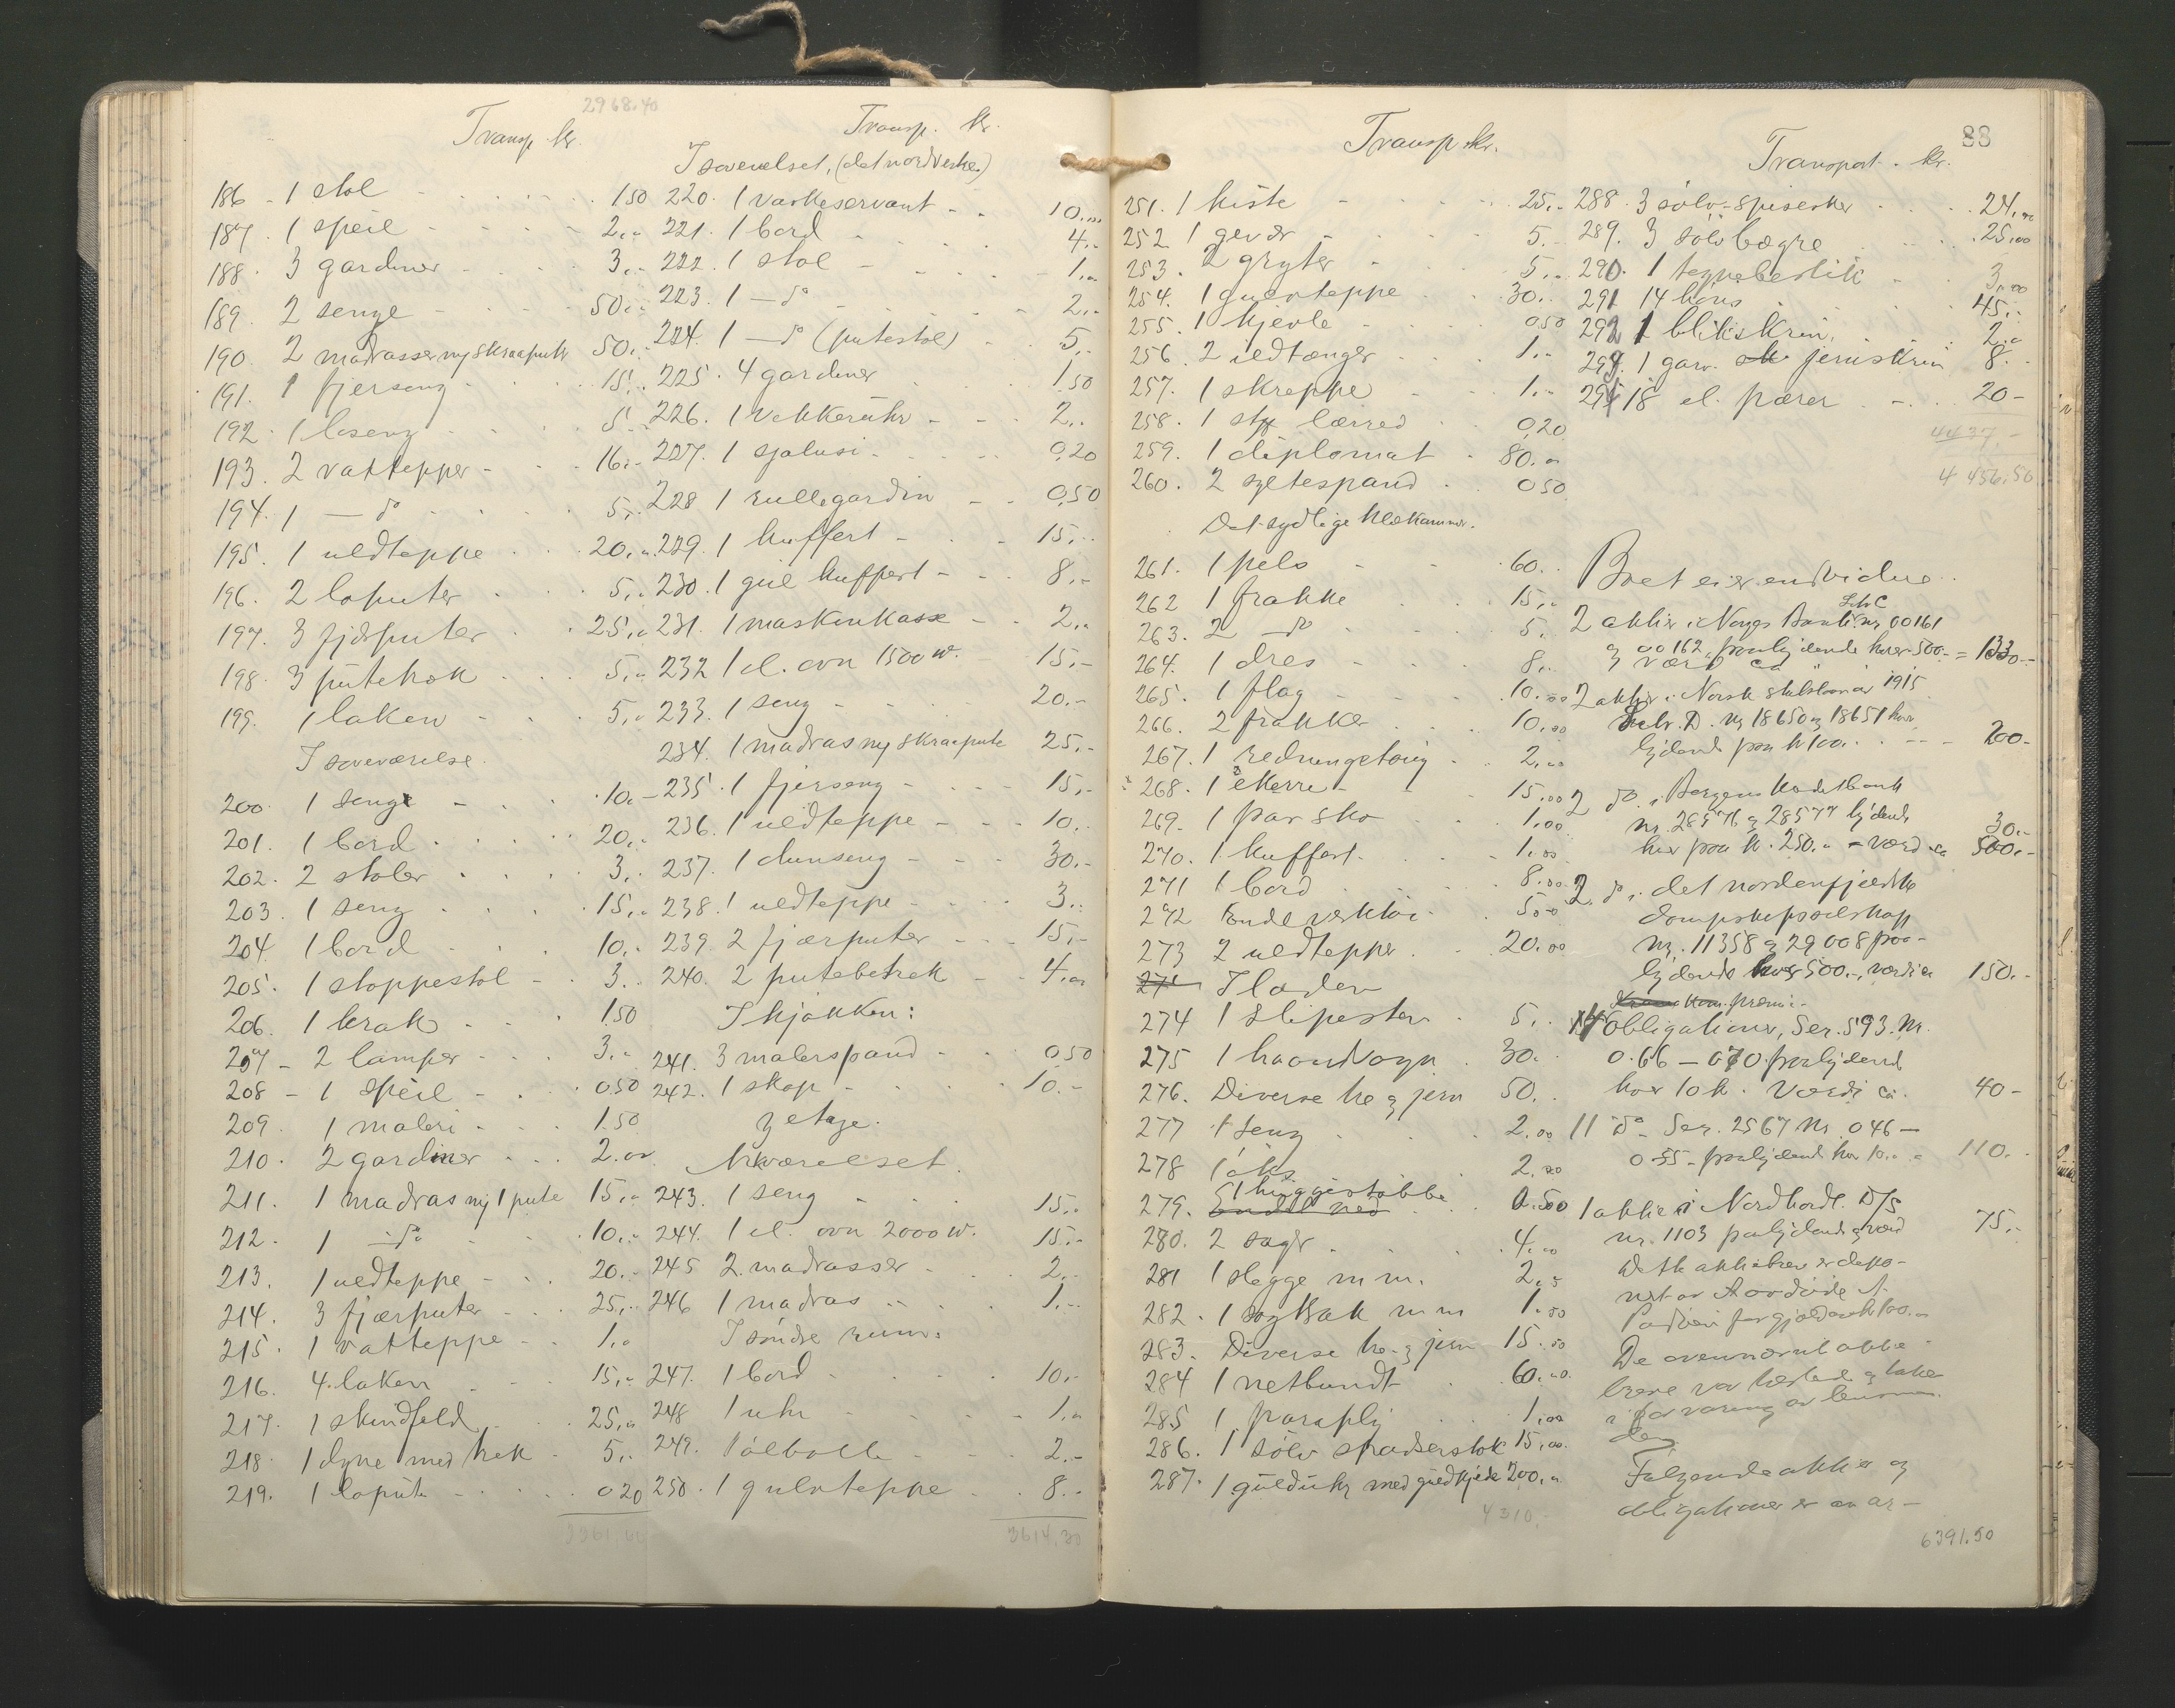 2968.40
Transp. kr.
186 - 1 stol 1.50
187. 1 speil 2.
188. 3 gardiner 3.
189. 2 senge 50.
190. 2 madrasser og skraapute 50.
191. 1 fjerseng 15.
192. 1 loseng 5.
193. 2 vattepper 16.
194. 1 — do 5.
195. 1 uldteppe 20.
196. 2 loputer 5.
197. 3 fjærputer 25.
198. 3 putetræk 5.
199. 1 laken 5.
I soveværelse
200. 1 senge 10.
201. 1 bord 20.
202. 2 stoler 3.
203. 1 seng 15.
204. 1 bord 10.
205. 1 stoppestol 3.
206. 1 krak 1.50
207 - 2 lamper 3.
208 - 1 speil 0.50
209. 1 maleri 1.50
210. 2 gardiner 2.00
211. 1 madras og 1 pute 15.
212. 1 — do 10.
213. 1 uldteppe 20.
214. 3 fjærputer 25.
215. 1 vatteppe 1.
216. 4 laken 15.
217. 1 skindfeld 25.
218. 1 dyne med trek 5.
219. 1 lopute 0.20
Transp. kr.
I soverelset, (det nordvestre)
220. 1 vaskeservant 10.
221. 1 bord 4.
222. 1 stol 1.
223. 1 — do 2.
224. 1 — do (putestol) 5.
225. 4 gardiner 1.50
226. 1 vekkeruhr 2.
227. 1 sjalusi 0.20
228 1 rullegardin 0.50
229. 1 kuffert 15.
230. 1 gul kuffert 8.
231. 1 maskinkasse 2.
232 1 el. ovn 1500 w. 15.
233. 1 seng 20.
234. 1 madras og skraapute 25.
235. 1 fjerseng 15.
236. 1 uldteppe 10.
237. 1 dunseng 30.
238. 1 uldteppe 3.
239. 2 fjærputer 15.
240. 2 putebetrek 4.
I kjøkken:
241. 3 malerspand 0.50
242. 1 skap 10.
3 etage.
243. 1 seng 15.
244. 1 el. ovn 2000 w. 15.
245 2 madrasser 2.
246 1 madras 1.
I søndre rum:
247. 1 bord 10.
248 1 uhr 1.
249. 1 ølbolle 2.
250. 1 gulvteppe 8.
3614.30
Transp. kr.
251. 1 kiste 25.
252 1 gevær 5.
253. 2 gryter 5.
254. 1 gulvteppe 30.
255. 1 kjevle 0.50
256. 2 ildtænger 1.
257. 1 skreppe 1.
258. 1 lærred 0.20
259. 1 diplomat 80.
260. 2 syltespand 0.50
Det sydlige
261. 1 pels 60.
262 1 frakke 15.
263. 2 — do 5.
264. 1 dres 8.
265. 1 flag 10.00
266. 2 frakker 10.00
267. 1 redningstøi 2.
268. 1 kkerre 15.00
269. 1 par sko 1.00
270. 1 kuffert 1.00
271 1 bord 8.00
272 Ende verktøi 5.00
273 2 uldtepper 20.00
I laden
274 1 slipesten 5.
275 1 haandvogn 30.
276. Diverse tre og jern 50.
277 1 seng 2.00
278 1 øks 2.00
279. 1 huggestabbe 0.50
280. 2 sager 4.00
281 1 slegge m.m. 2.
282. 1 m.m 1.00
283. Diverse tre og jern 15.00
284 1 netbundt 60.00
285 1 paraply 1.00
286. 1 sølv spaserstok 15.00
287. 1 guldur med guldkjede 200.
4310.-
88
Transport. kr.
288. 3 sølv-spisesker 24.
289. 3 sølvbægre 25.00
290. 1 tegnebestik 3.00
291 14 høns 45.
292 1 blikskrin 2.
293. 1 garv. jernskrin 8.
294 18 el. pærer 20-
4437.-
4456.50
Boet eier endvidere
2 aktier i Norges Bank Litr C nr 00161
og 00162, paalydende hver 500.-
værd ca = 1330.-
2 aktier i Norsk 1915
Litr. D. nr 18650 og 18651 hver
lydende paa kr 100. 200-
2 do i Bergens Kreditbank
nr. 28576 og 28577 lydende
hver paa kr. 250. - værd ca 500.-
30.-
2 do i det nordenfjeldske
dampskipsselskap
nr. 11358 og 29008 paa-
lydende hver 500.-, verdi ca 150.-
præmie
14 obligationer, Ser. 593. Nr.
0.66 — 070 paalydende
hver 10 kr. Verdi ca. 40-
11 do Ser. 2567 Nr. 046 —
055 - paalydende hver 10. 110.-
1 aktie i Nordhordl. D/S
nr. 1103 paalydende og værd 75.-
Dette aktiebrev er depo-
nert av
for gjæld kr 100.-
De ovennævnte aktie-
breve var tilstede og takes
i forvaring av lensman-
den
Følgende aktier og
obligationer er an ar-
6391.50